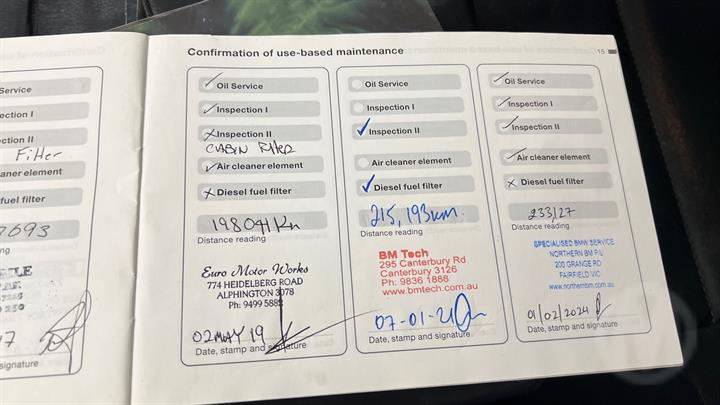 Confirmation of use-based maintenance
15
Service
ection I
ection II
Filter
aner element
fuel filter
7693
ng
17
signature
Oil Service
Inspection I
Inspection II
CABIN FILTER
Air cleaner element
Diesel fuel filter
198041 Km
Distance reading
Euro Motor Works
774 HEIDELBERG ROAD
ALPHINGTON 3078
Ph: 9499 5885
02 MAY 19
Date, stamp and signature
Oil Service
Inspection I
Inspection II
Air cleaner element
Diesel fuel filter
215,193km.
Distance reading
BM Tech
295 Canterbury Rd
Canterbury 3126
Ph: 9836 1888
www.bmtech.com.au
07-01-21
Date, stamp and signature
Oil Service
Inspection I
Inspection II
Air cleaner element
Diesel fuel filter
233127
Distance reading
SPECIALISED BMW SERVICE
NORTHERN BM P/L
200 GRANGE RD
FAIRFIELD VIC
www.northernbm.com.au
01/02/2024
Date, stamp and signature